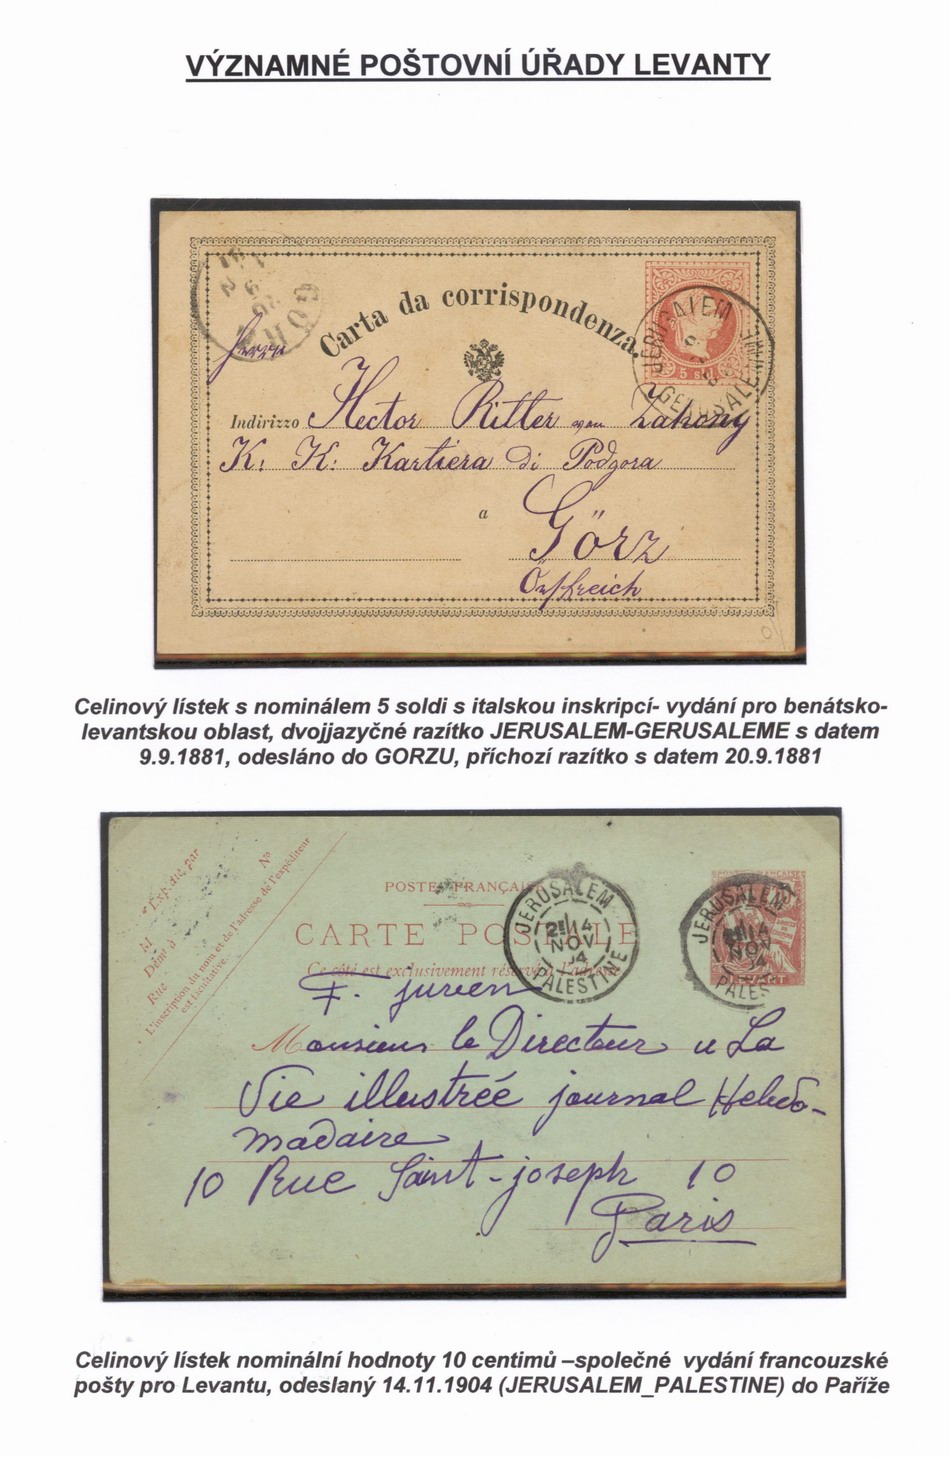 VÝZNAMNÉ POŠTOVNÍ ÚŘADY LEVANTY
Carta da corrispondenza.
JERUSALEM
GERUSALEMME
5 sld
GÖRZ
Herrn
Indirizzo Hector Ritter von Zahony
K: K: Kartiera di Podgora
a Görz
Österreich
Celinový lístek s nominálem 5 soldi s italskou inskripcí- vydání pro benátsko-
levantskou oblast, dvojjazyčné razítko JERUSALEM-GERUSALEME s datem
9.9.1881, odesláno do GORZU, příchozí razítko s datem 20.9.1881
Expédié par
M
Demt à
Rue No
L'inscription du nom et de l'adresse de l'expéditeur
est facultative.
POSTES FRANÇAISES
CARTE POSTALE
Ce côté est exclusivement réservé à l'adresse
JERUSALEM
14
NOV
04
PALESTINE
JERUSALEM
14
NOV
04
PALES
F. juven
Monsieur le Directeur u La
Vie illustrée journal Hebdo-
madaire
10 Rue Saint-joseph 10
Paris
Celinový lístek nominální hodnoty 10 centimů –společné vydání francouzské
pošty pro Levantu, odeslaný 14.11.1904 (JERUSALEM_PALESTINE) do Paříže